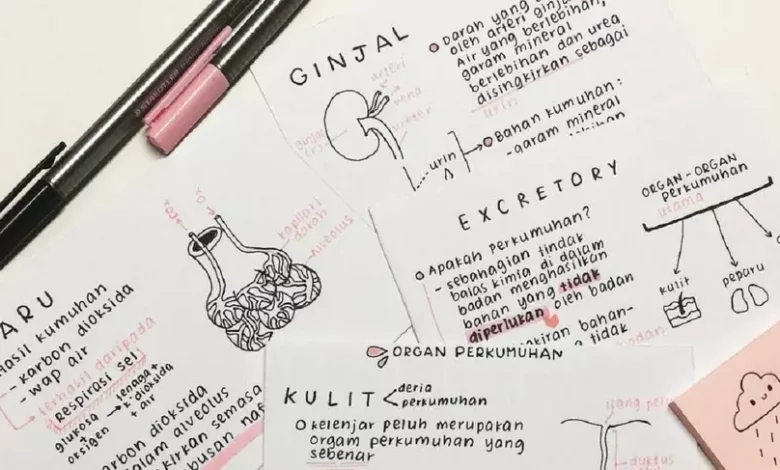 GINJAL
Darah yang
oleh arteri ginjal
Air yang berlebihan,
garam mineral
berlebihan dan urea
disingkirkan sebagai
urin
arteri
vena
ginjal
ureter
urin
Bahan kumuhan:
- garam mineral
EXCRETORY
ORGAN-ORGAN
perkumuhan
utama
Apakah perkumuhan?
- sebahagian tindak
balas kimia di dalam
badan menghasilkan
bahan yang tidak
diperlukan oleh badan
bahan-
tidak
badan
kulit
peparu
kapilari
darah
alveolus
ARU
Hasil kumuhan
- karbon dioksida
- wap air
terhasil daripada
respirasi sel
glukosa
+
oksigen
→
tenaga +
k. dioksida
+ air
karbon dioksida
dalam alveolus
semasa
ORGAN PERKUMUHAN
KULIT
deria
perkumuhan
kelenjar peluh merupakan
orgam perkumuhan yang
sebenar
liang pelu
duktus
STAEDTLER